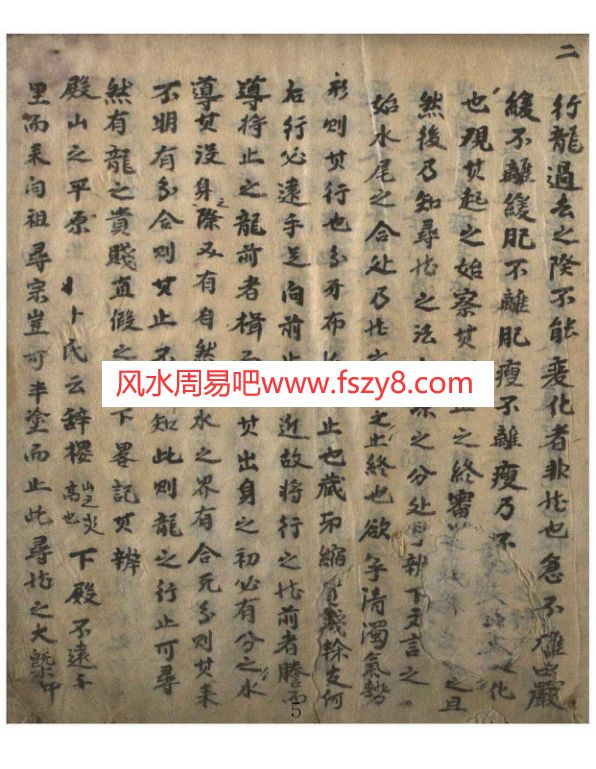 二
行龍過去之際不能变化者非龙也急不離
緩不離緩肥不離肥瘦不離瘦乃
也現其起之始察其之終審之且
然後乃知尋龙之法之分处下文言之
始水尾之合处乃龙之終也欲清濁氣勢
形則其行也分牙布止也藏縮余支何
右行必遠手足向前近故将行之龙前者
導将止之龍前者楫而其出身之初必有分之水
導其没身之際又有自然水之界有合无分則其来
不明有分合則其止不知此則龍之行止可尋
然有龍之貴賤直假之下畧記其辨
殿山之平原卜氏云辞楼山之尖高也下殿不遠千
里而来问祖尋宗豈可半塗而止此尋龙之大
风水周易吧www.fszy8.com
5